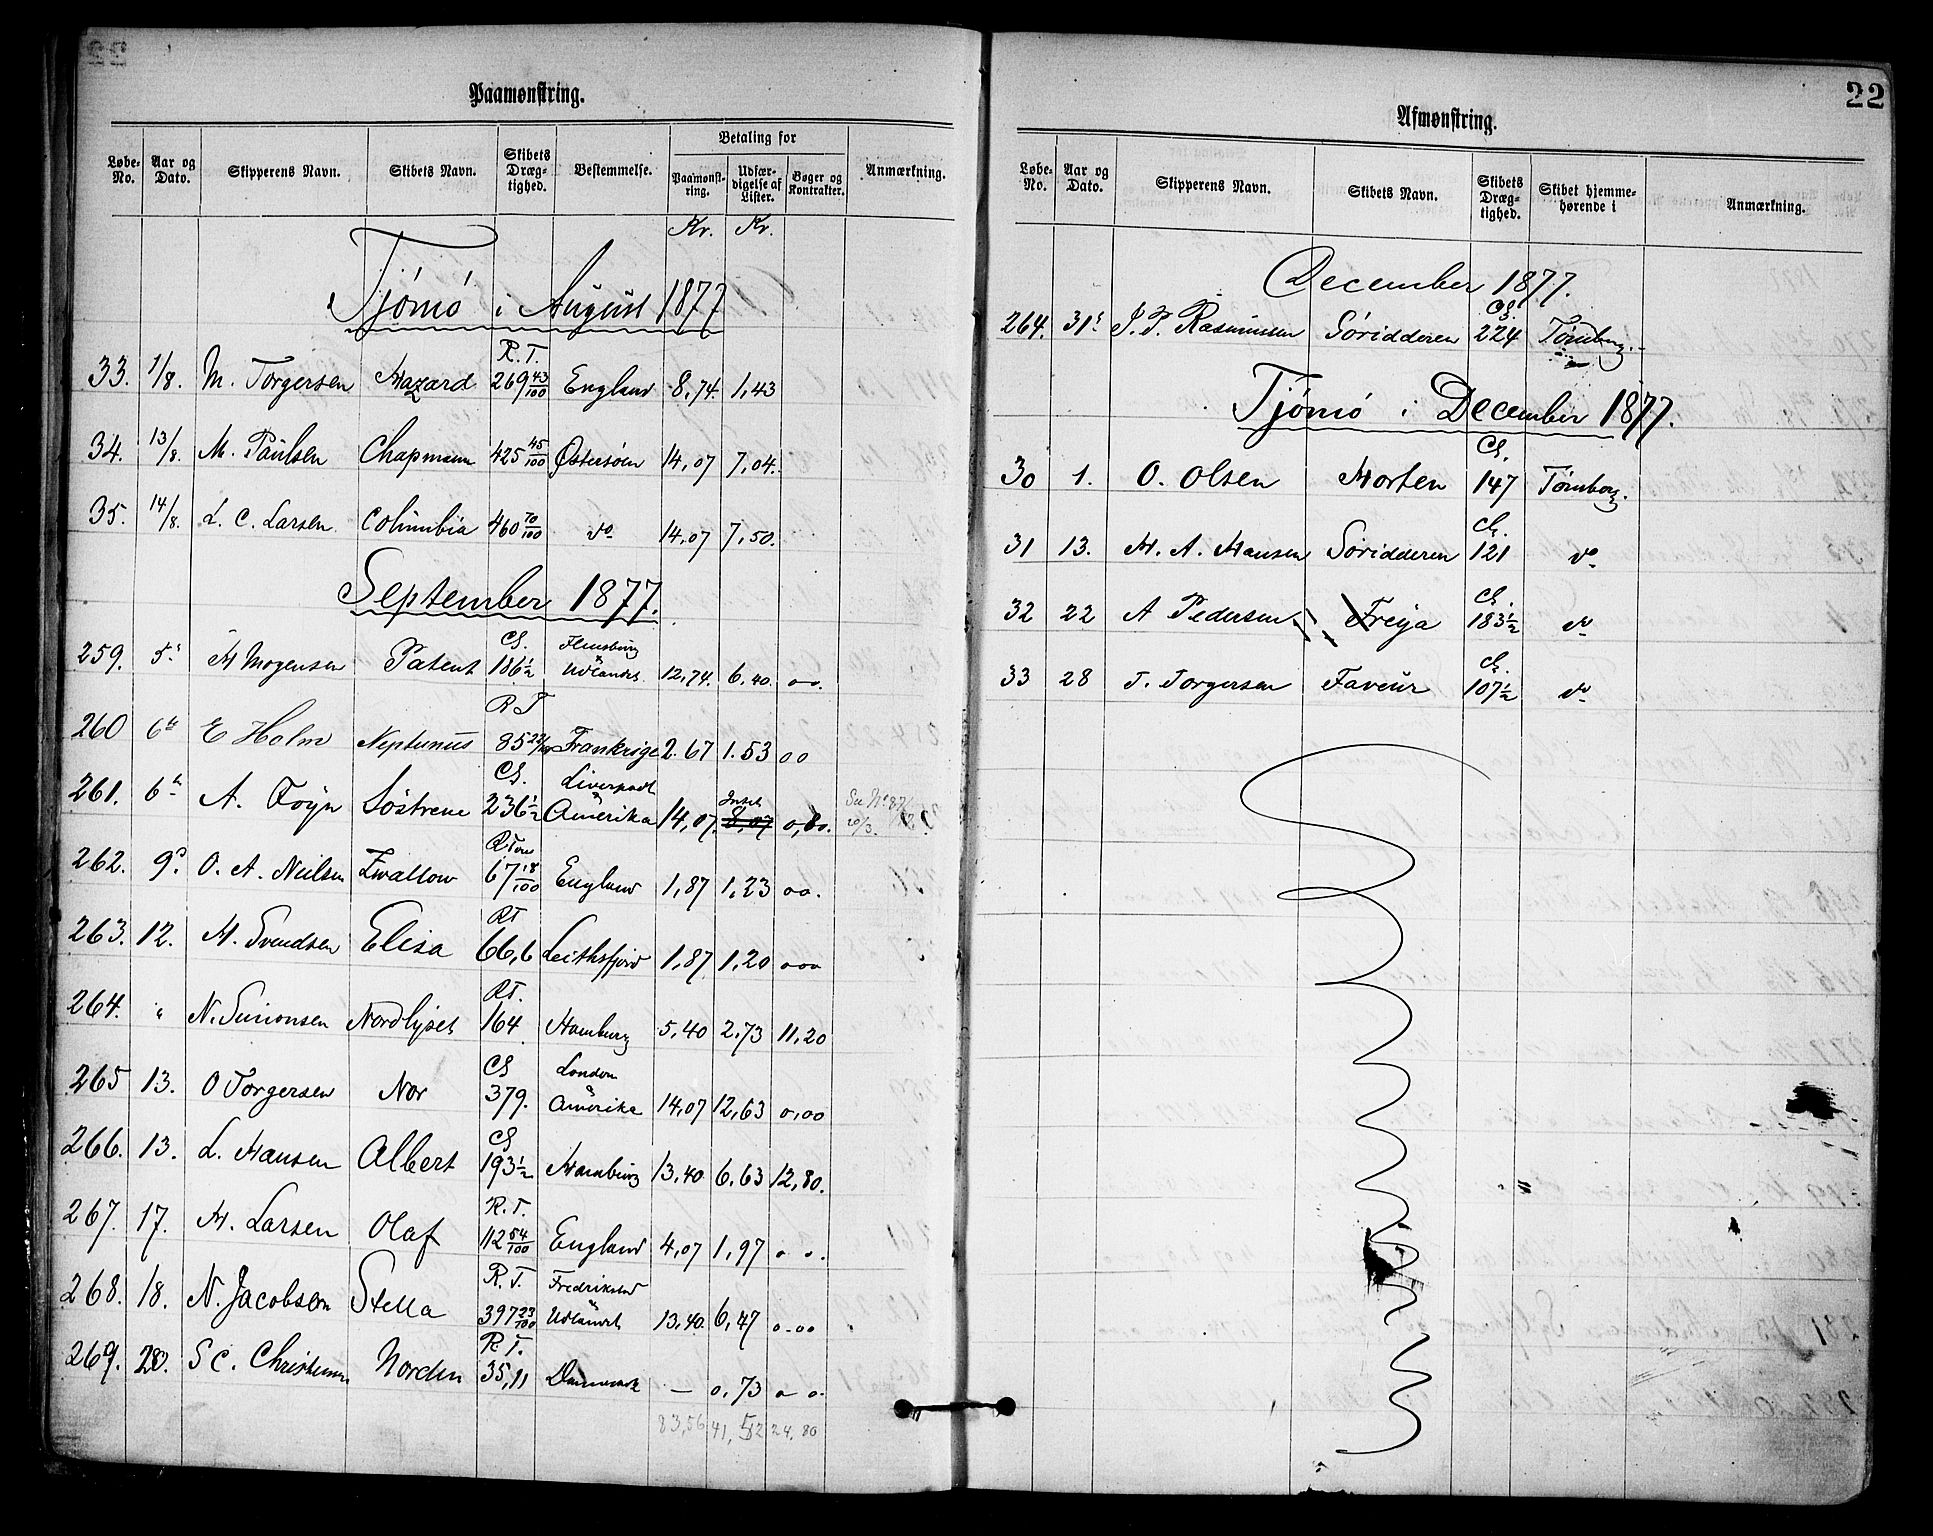 Paamønstring.
Løbe-No. | Aar og Dato. | Skipperens Navn. | Skibets Navn. | Skibets Dræg-tighed. | Bestemmelse. | Betaling for | Paamønst-ring. | Udfær-digelse af Lister. | Bøger og Kontrakter. | Anmærkning.
Kr. Kr.
Tjømø i August 1877
R. T.
33. 1/8. M. Torgersen Hazard 269 43/100 England 8,74 1,43
34. 13/8. M. Paulsen Chapmann 425 45/100 Østersøen 14,07 7,04.
35. 14/8. L. C. Larsen Columbia 460 70/100 do 14,07 7,50.
September 1877.
CL. Flensburg
259. 5. H Mogensen Patent 186 1/2 & Udlandet 12,74. 6,40. oo.
R T
260 6te E Holm Neptunus 85 22/100 Frankrige 2.67 1.53 oo
CL. Liverpool
261. 6te A. Foyn Søstrene 236 1/2 & Amerika 14,07. 8,07 0,80. See No 87/ 20/3.
R Tons
262. 9. O. A. Nielsen Swallow 67 18/100 England 1,87 1,23 oo.
RT
263. 12. H. Svendsen Elisa 66,6 Leithsfjord 1,87 1,20 ooo
RT.
264. " N. Simonsen Nordlyset 164 Hamburg 5,40 2,73 11,20
CL London
265 13. O Torgersen Nor 379. & Amerika 14,07 12,63 0,00
CL
266. 13. L. Hansen Albert 193 1/2 Hamburg 13,40 6.63 12,80.
R. T.
267. 17. H. Larsen Olaf 112 54/100 England 4,07 1,97 o o.
R. T. Fredrikstad
268. 18. N. Jacobsen Stella 397 23/100 & Udlandet 13,40. 6,47 o-oo
R. T.
269. 20. S C. Christensen Norden 35,11 Danmark — 0,73 o o.
83,56 41,52 24.80
22
Afmønstring.
Løbe-No. | Aar og Dato. | Skipperens Navn. | Skibets Navn. | Skibets Dræg-tighed. | Skibet hjemme-hørende i | Anmærkning.
December 1877.
CL.
264. 31. J. P. Rasmussen Søridderen 224 Tønsberg.
Tjømø i December 1877.
CL.
30 1. O. Olsen Morten 147 Tønsberg.
CL.
31 13. H. A. Hansen Søridderen 121 do
CL.
32 22 A Pedersen Freya 183 1/2 do
CL.
33 28 T. Torgersen Faveur 107 1/2 do